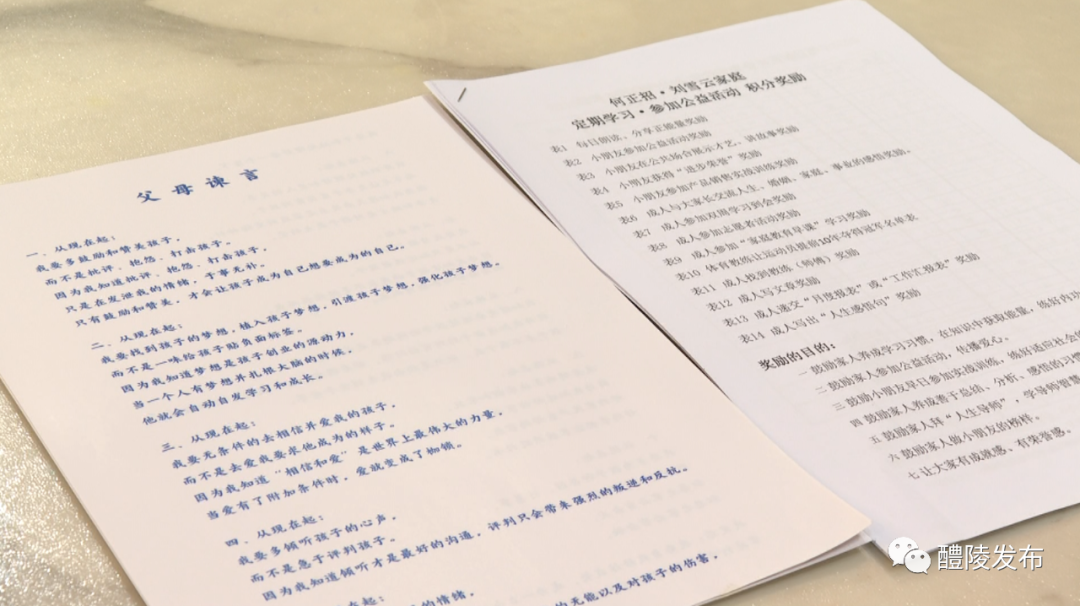 父母谏言
一、从现在起：
我要多鼓励和赞美孩子，
而不是批评、抱怨、打击孩子。
因为我知道批评、抱怨、打击孩子，
只是在发泄我的情绪，于事无补。
只有鼓励和赞美，才会让孩子成为自己想要成为的自己。
二、从现在起：
我要找到孩子的梦想，植入孩子梦想，引渡孩子梦想，强化孩子梦想。
而不是一味给孩子贴负面标签。
因为我知道梦想是孩子创业的源动力，
当一个人有梦想并扎根大脑的时候。
他就会自动自发学习和成长。
三、从现在起：
我要无条件的去相信并爱我的孩子，
而不是去爱我要求他成为的样子。
因为我知道“相信和爱”是世界上最伟大的力量，
当爱有了附加条件时，爱就变成了枷锁。
四、从现在起：
我要多倾听孩子的心声，
而不是急于评判孩子。
因为我知道倾听才是最好的沟通，评判只会带来强烈的叛逆和反抗。
在起：
的情绪，
的无能以及对孩子的伤害，
何正招·刘雪云家庭
定期学习·参加公益活动 积分奖励
表1 每日朗读、分享正能量奖励
表2 小朋友参加公益活动奖励
表3 小朋友在公共场合展示才艺、讲故事奖励
表4 小朋友获得“进步荣誉”奖励
表5 小朋友参加产品销售实战训练奖励
表6 成人与大家长交流人生、婚姻、家庭、事业的感悟奖励。
表7 成人参加双周学习到会奖励
表8 成人参加志愿者活动奖励
表9 成人参加“家庭教育导课”学习奖励
表10 体育教练让运动员提前10年夺得冠军名单表
表11 成人找到教练（师傅）奖励
表12 成人写文章奖励
表13 成人递交“月度报表”或“工作汇报表”奖励
表14 成人写出“人生感悟句”奖励
奖励的目的：
一 鼓励家人养成学习习惯，在知识中获取能量，练好内功
二 鼓励家人参加公益活动，传播爱心。
三 鼓励小朋友早日参加实战训练，练好适应社会的
四 鼓励家人养成善于总结、分析、感悟的习惯
五 鼓励家人拜“人生导师”，学导师智慧
六 鼓励家人做小朋友的榜样。
七 让大家有成就感、有荣誉感。
醴陵发布